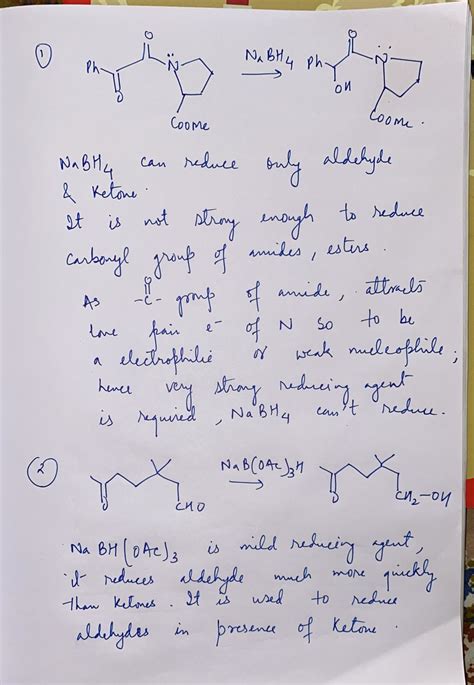 ① Ph O O N̈ COOMe NaBH4 → Ph O OH N̈ COOMe.
NaBH4 can reduce only aldehyde
& Ketone.
It is not strong enough to reduce
carbonyl group of amides, esters.
As -C- group of amide, attracts
O
lone pair e- of N so to be
a electrophilic or weak nucleophile;
hence very strong reducing agent
is required, NaBH4 can't reduce.
② O CHO NaB(OAc)3H → O CH2-OH
NaBH(OAc)3 is mild reducing agent,
it reduces aldehyde much more quickly
than Ketones. It is used to reduce
aldehydes in presence of Ketone.